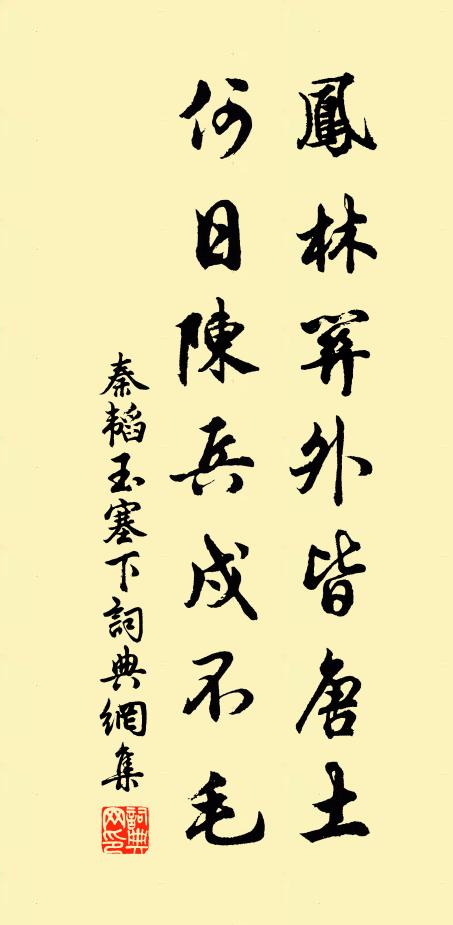 鳳林關外皆唐土
何日陳兵戍不毛
秦韜玉塞下詞典網集
詞典网印